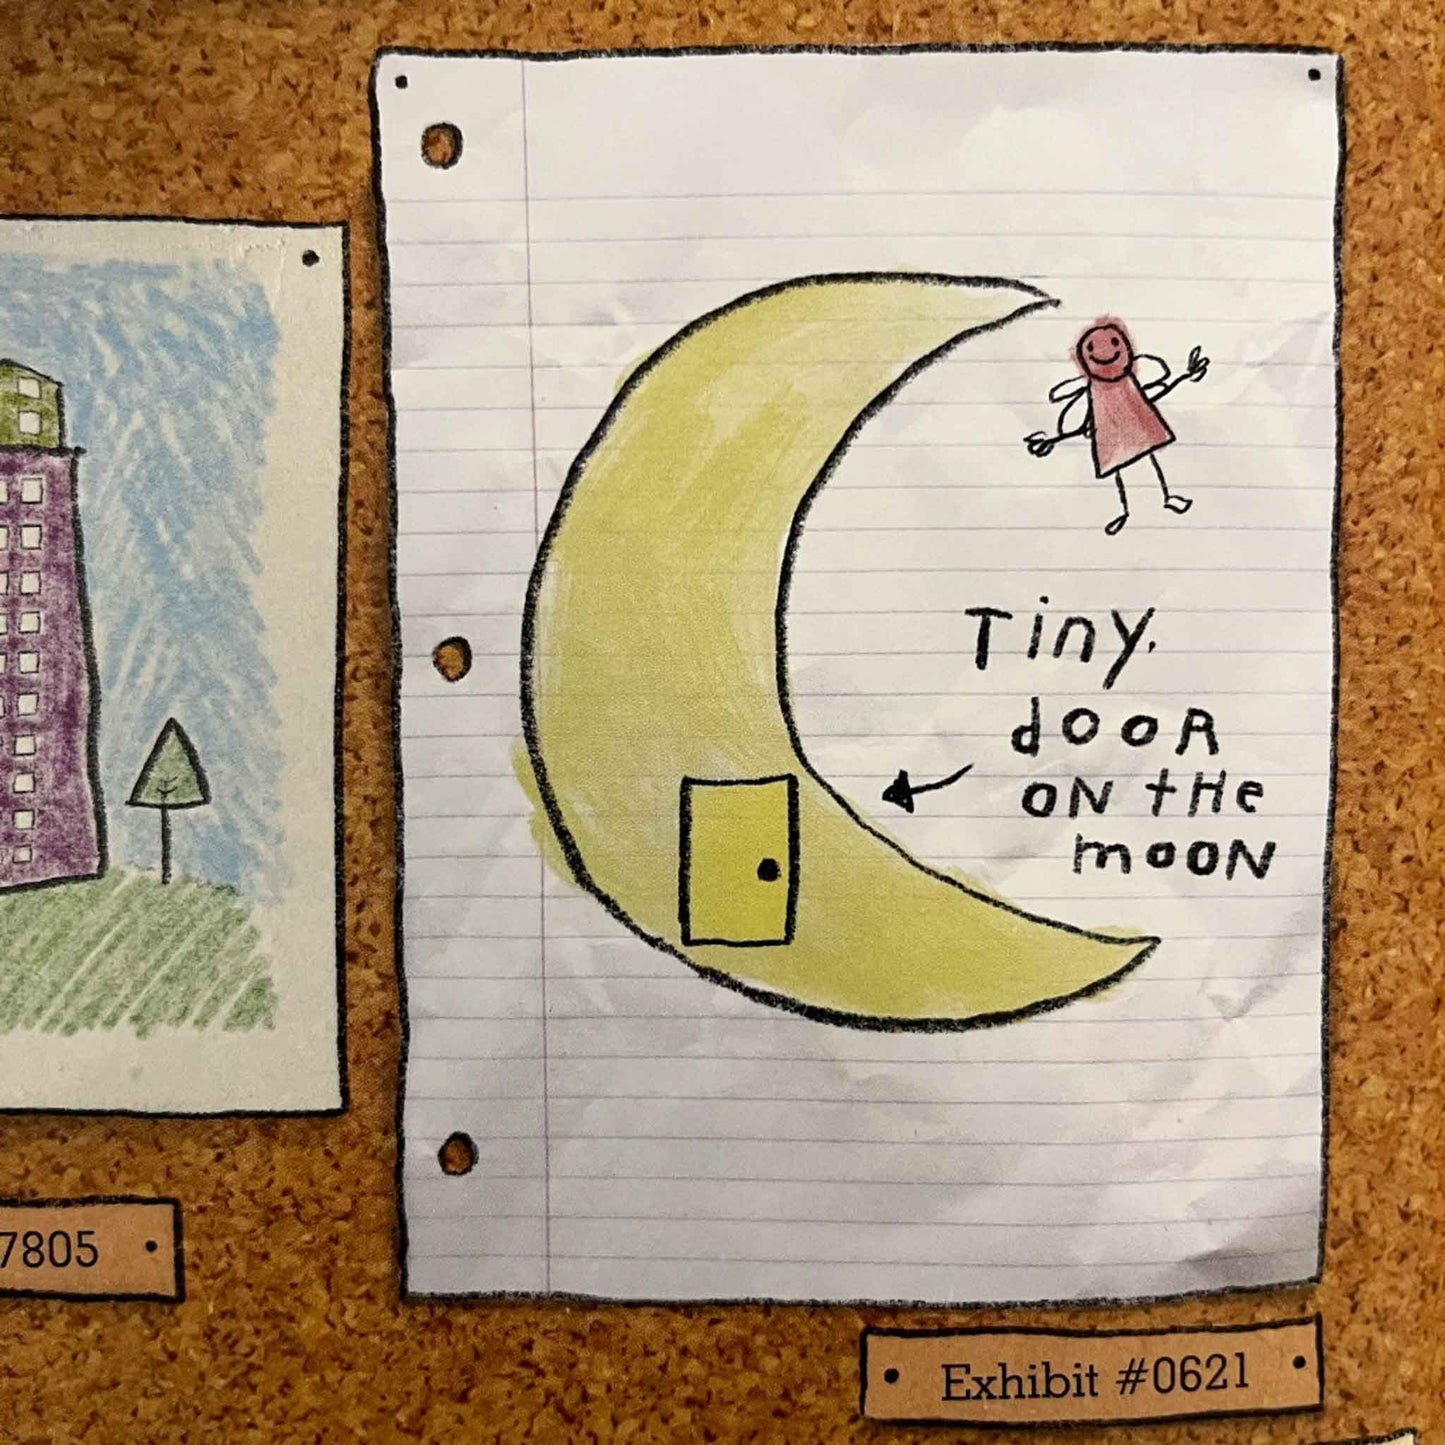 Tiny.
dooR
oN tHe
mooN
7805
Exhibit #0621